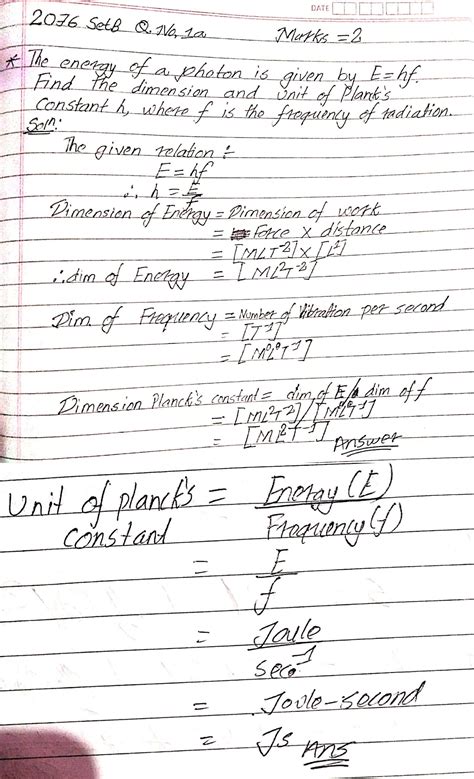 DATE
2076 SetB Q.No, 1a Marks = 2
* The energy of a photon is given by E=hf.
Find the dimension and unit of Plank's
Constant h, where f is the frequency of radiation.
Solⁿ:
The given relation :-
E = hf
∴ h = E/f
Dimension of Energy = Dimension of work
= Force × distance
= [MLT⁻²] × [L¹]
∴ dim of Energy = [ML²T⁻²]
Dim. of Frequency = Number of Vibration per second
= [T⁻¹]
= [M⁰L⁰T⁻¹]
Dimension Planck's constant = dim of E/ dim of f
= [ML²T⁻²]/[M⁰L⁰T⁻¹]
= [ML²T⁻¹] Answer
Unit of planck's constant = Energy (E) / Frequency (f)
= E / f
= Joule / sec⁻¹
= Joule-second
= Js Ans